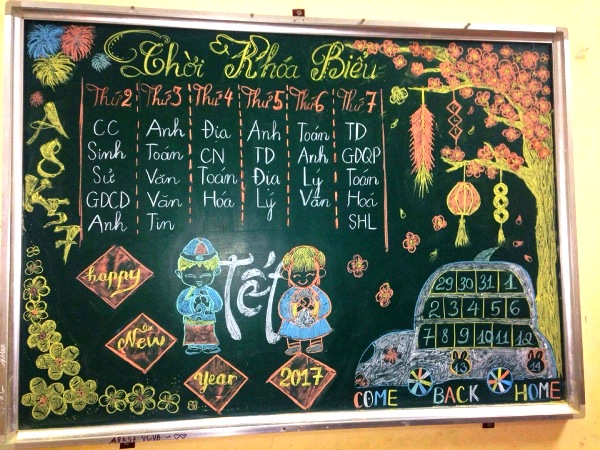 Thời Khóa Biểu
A8K57
Thứ 2 Thứ 3 Thứ 4 Thứ 5 Thứ 6 Thứ 7
CC Anh Địa Anh Toán TD
Sinh Toán CN TD Anh GDQP
Sử Văn Toán Địa Lý Toán
GDCD Văn Hóa Lý Văn Hoá
Anh Tin SHL
happy
New
Year
2017
Tết
29 30 31 1
2 3 4 5 6
7 8 9 10 11 12
13 14
COME BACK HOME